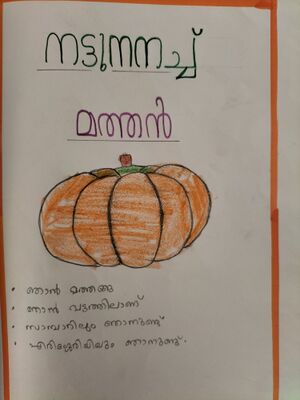 നട്ടുനനച്ച്
മത്തൻ
• ഞാൻ മത്തങ്ങ
• ഞാൻ വട്ടത്തിലാണ്
• സാമ്പാറിലും ഞാനുണ്ട്
• എരിശ്ശേരിയിലും ഞാനുണ്ട്.